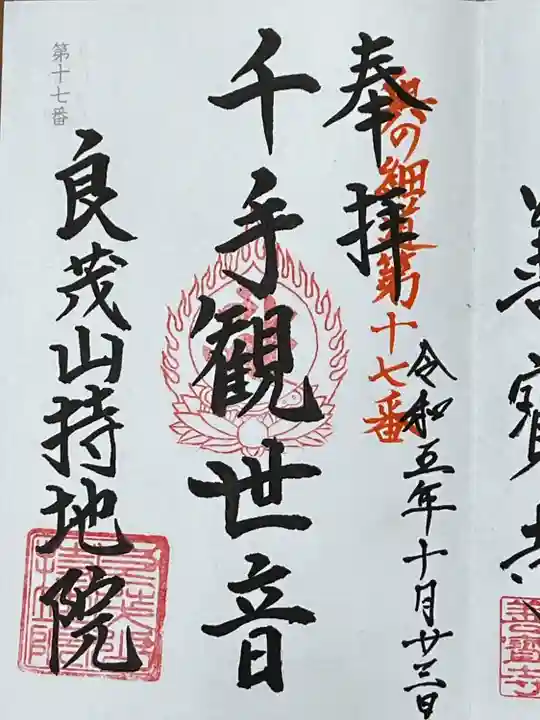 善寳寺
善寳寺
奉拝
奥の細道第十七番
令和五年十月廿三日
千手観世音
良茂山持地院
第十七番